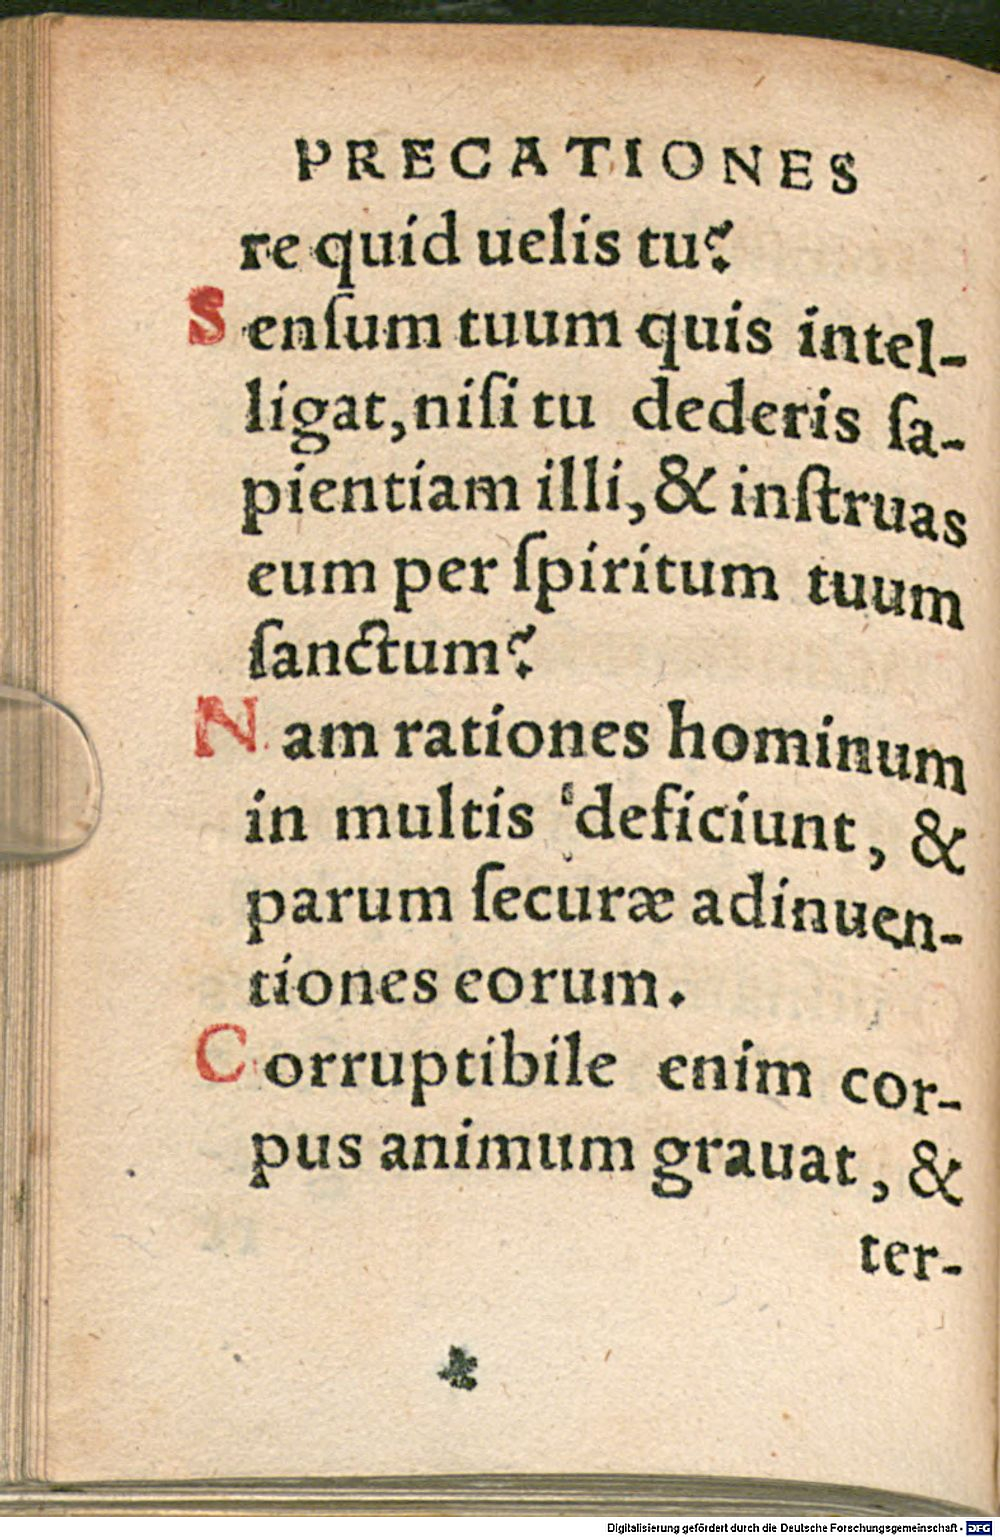 PRECATIONES
re quid uelis tu?
Senſum tuum quis intel-
ligat, niſi tu dederis ſa-
pientiam illi, & inſtruas
eum per ſpiritum tuum
ſanctum?
Nam rationes hominum
in multis deficiunt, &
parum ſecuræ adinuen-
tiones eorum.
Corruptibile enim cor-
pus animum grauat, &
ter-
Digitalisierung gefördert durch die Deutsche Forschungsgemeinschaft - DFG